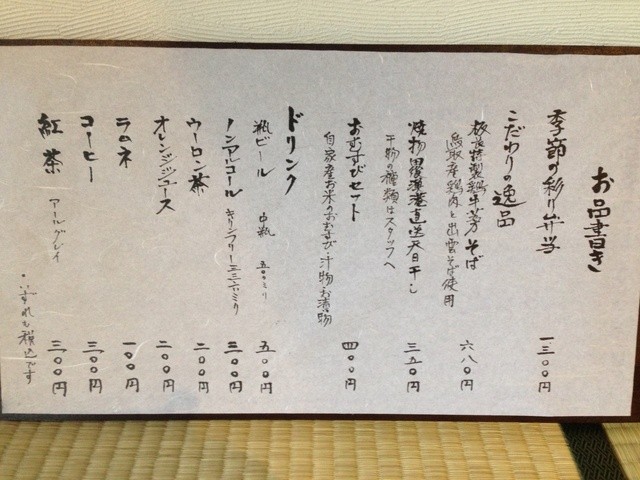 お品書き
季節の彩り弁当 一、三〇〇円
こだわりの逸品
板長特製鶏牛蒡そば 六八〇円
鳥取産鶏肉と出雲そば使用
焼物 直送天日干し 三五〇円
干物の種類はスタッフへ
おむすびセット 四〇〇円
自家産お米のおむすび・汁物・お漬物
ドリンク
瓶ビール 中瓶 五〇〇ミリ 五〇〇円
ノンアルコール キリンフリー三三六ミリ 三〇〇円
ウーロン茶 二〇〇円
オレンジジュース 二〇〇円
ラムネ 一〇〇円
コーヒー 三〇〇円
紅茶 アールグレイ 三〇〇円
・いずれも税込です